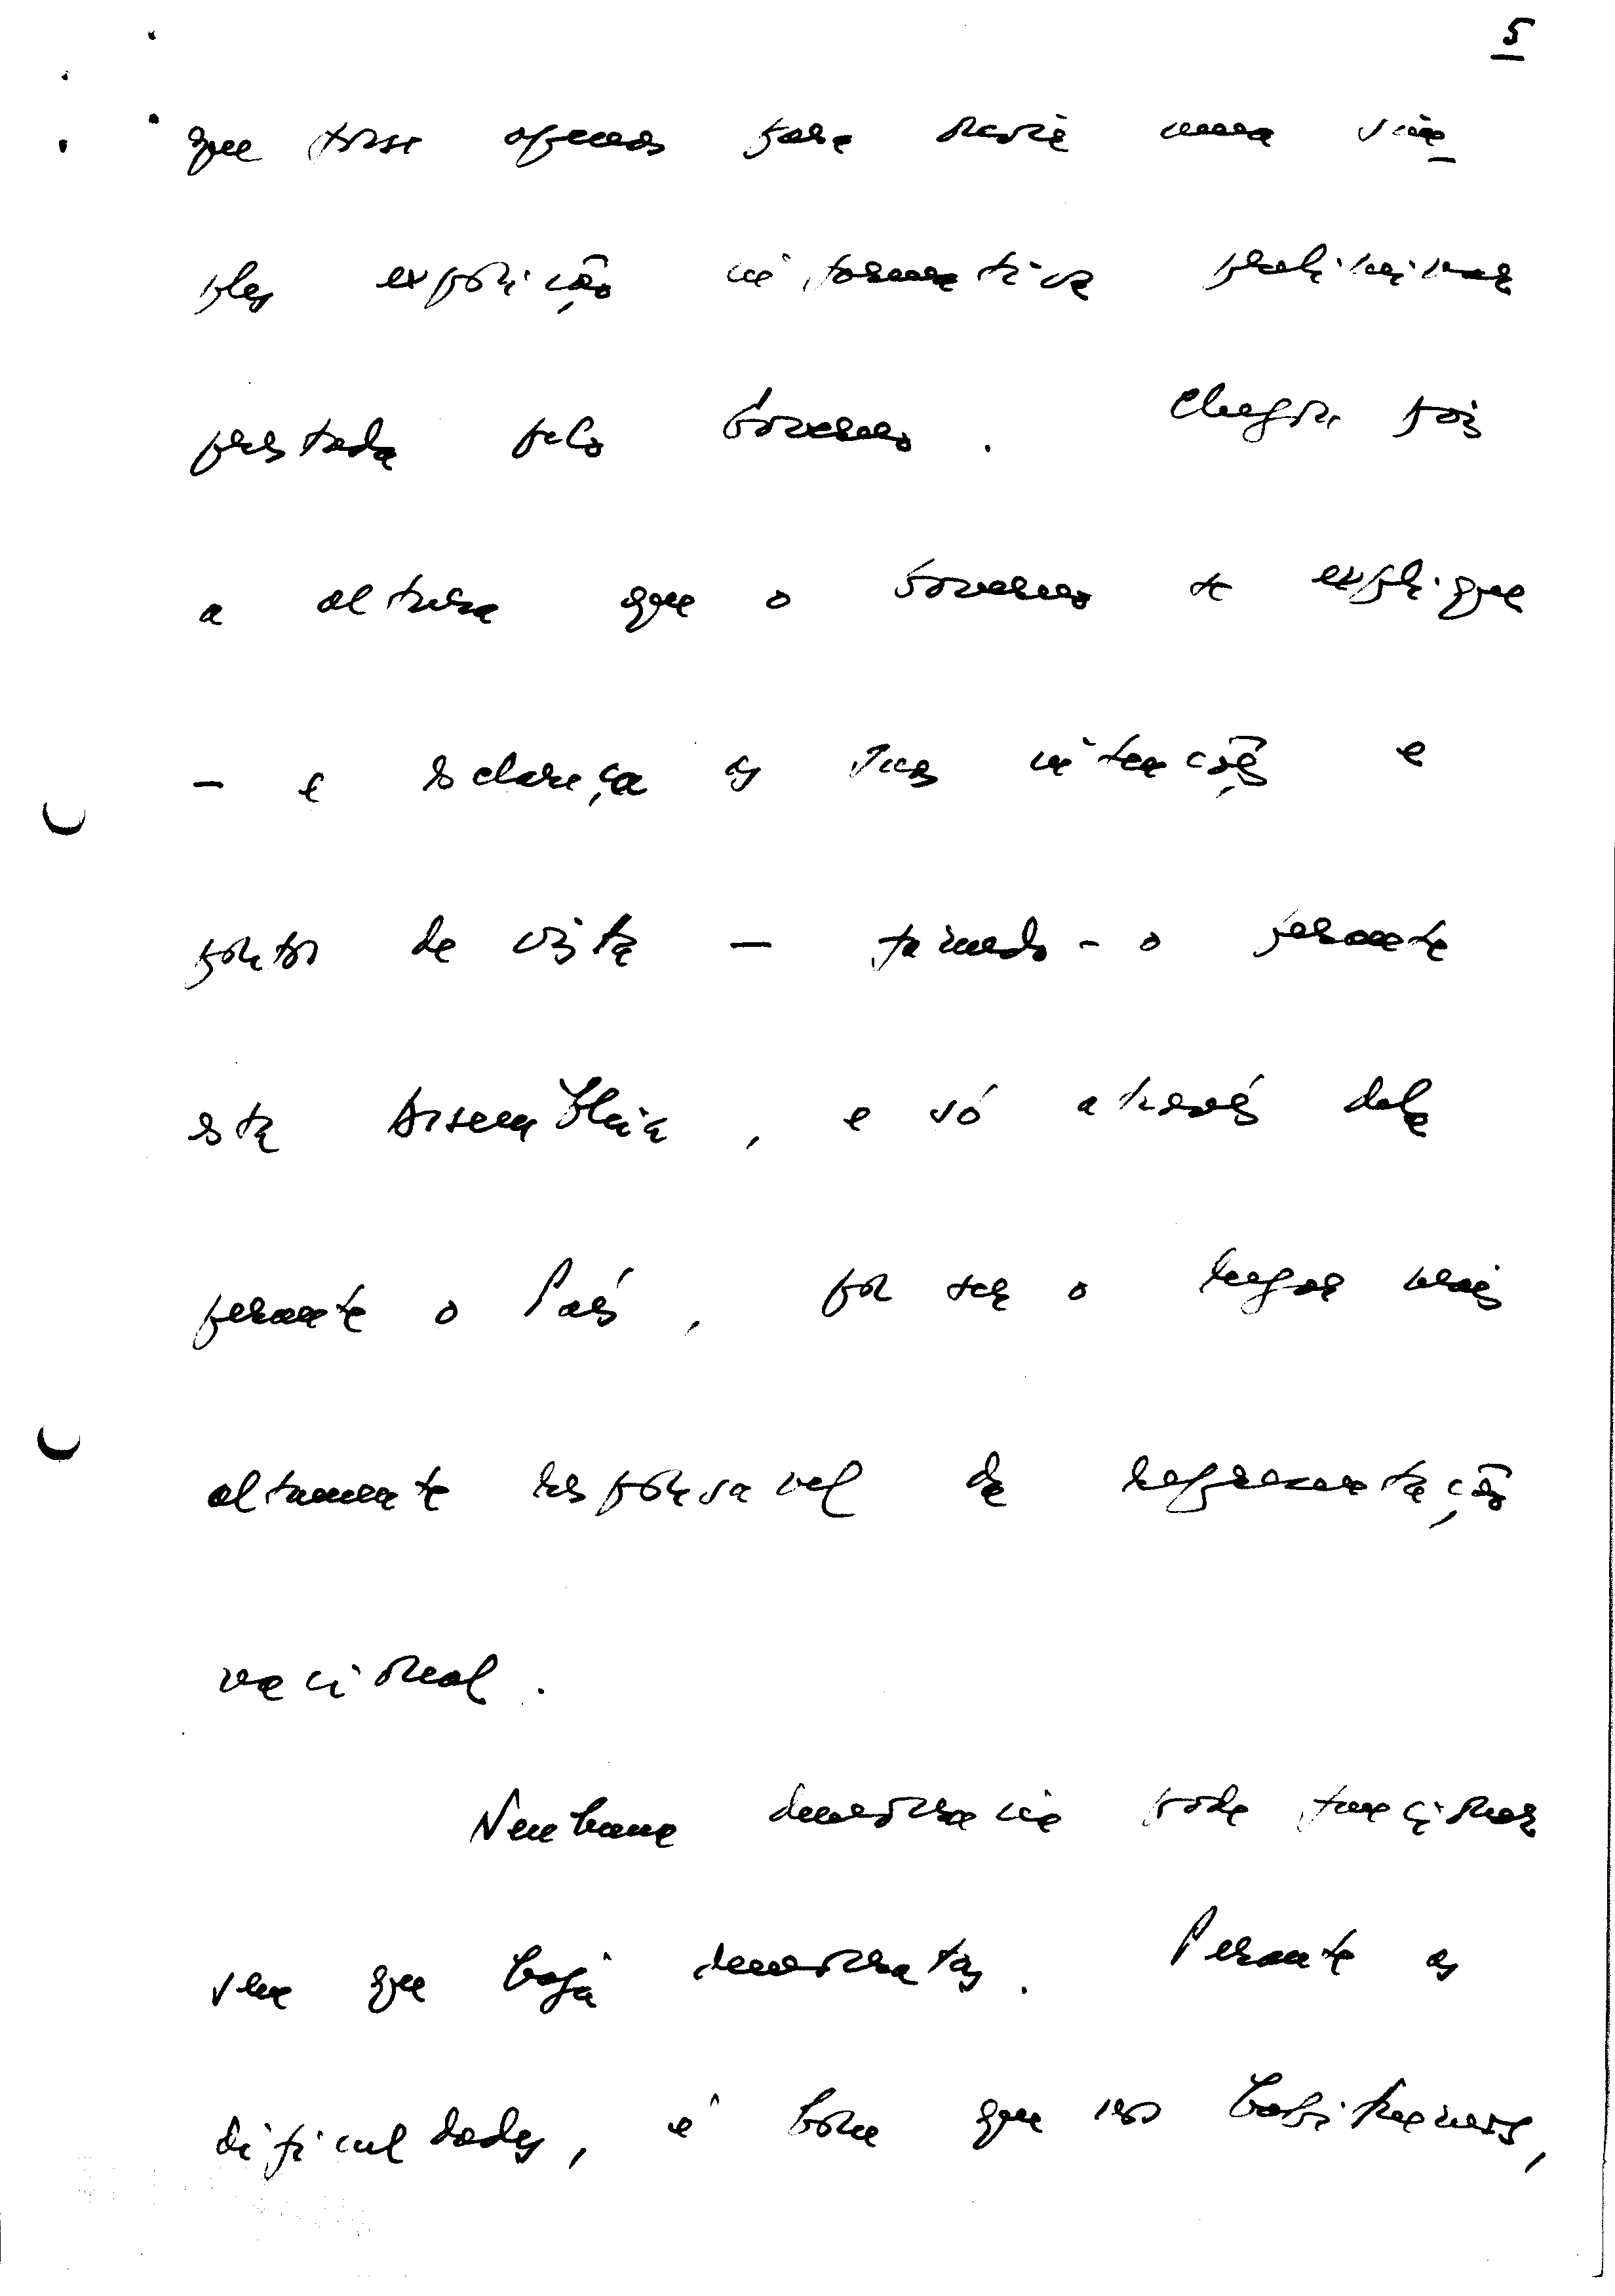 5
que fosse apenas para ouvir uma sim-
ples exposição informativa preliminar
prestada pelo Governo. Chegou pois
a altura que o Governo se explique
- e esclareça as suas intenções e
pontos de vista - fazendo-o perante
esta Assembleia, e só através dela
perante o País, por ser o lugar mais
altamente responsável da representação
nacional.
Nenhuma democracia pode funcionar
sem que haja democratas. Perante as
dificuldades, é bom que nos habituemos,